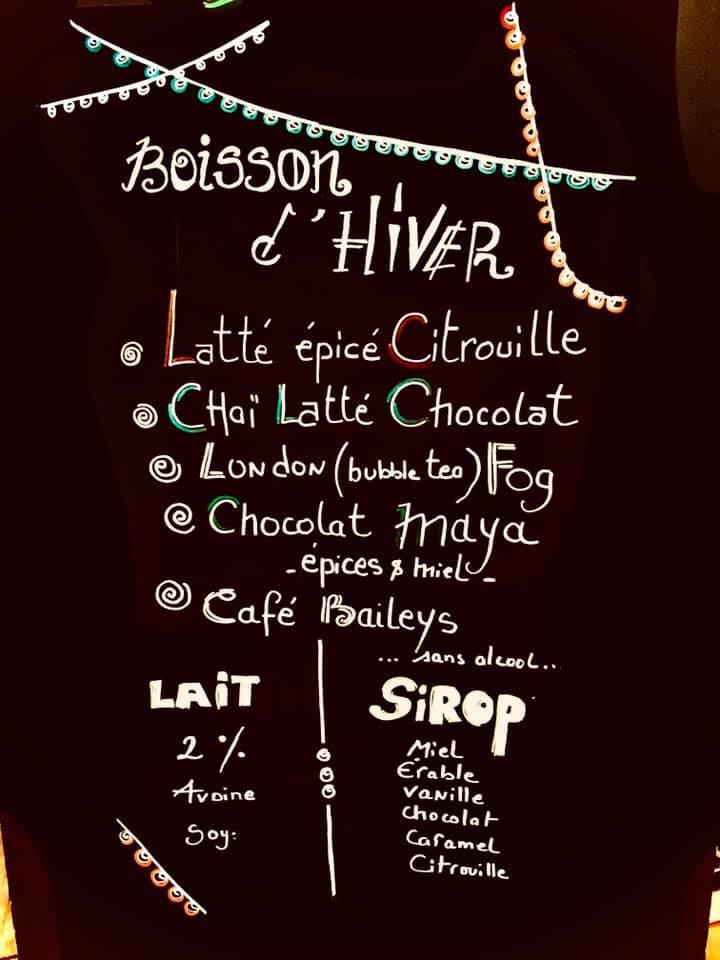 Boisson
d'HiVER
Latté épicé Citrouille
CHaï Latté Chocolat
London (bubble tea) Fog
Chocolat Maya
- épices & miel -
Café Baileys
... sans alcool...
LAiT
2 %
Avoine
Soy:
SiROP
Miel
Érable
Vanille
Chocolat
Caramel
Citrouille